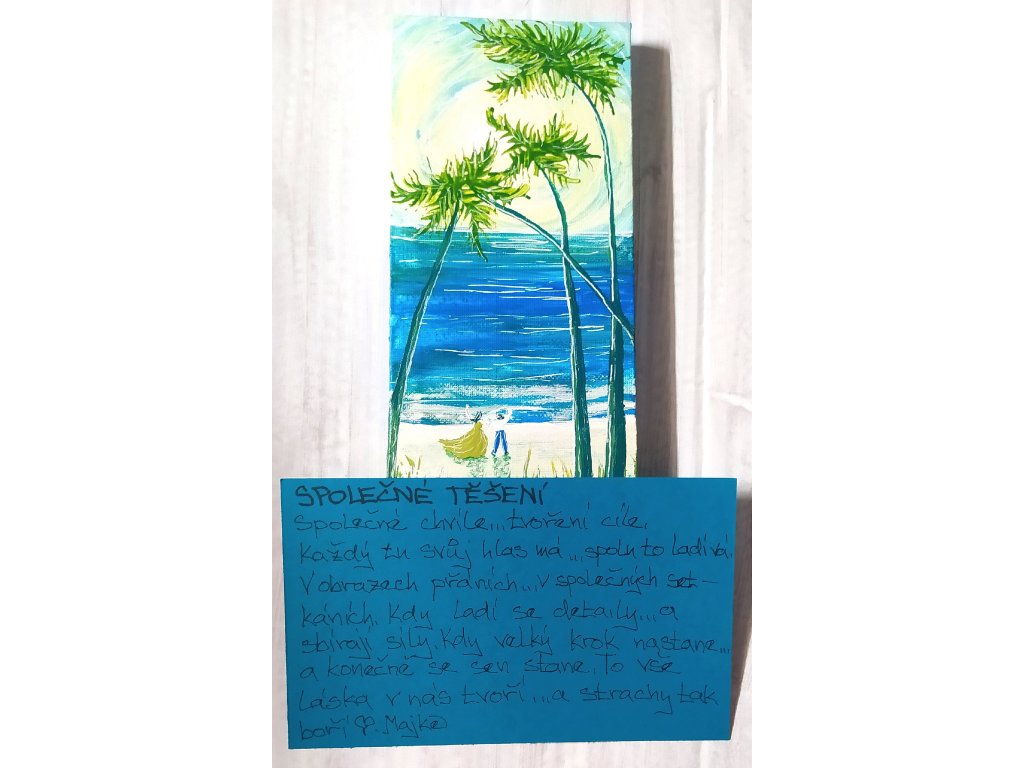 SPOLEČNÉ TĚŠENÍ
Společné chvíle...tvoření cíle.
Každý tu svůj hlas má...spolu to ladívá.
V obrazech přáních...v společných set-
káních. Kdy ladí se detaily...a
sbírají síly. Kdy velký krok nastane...
a konečně se sen stane. To vše
láska v nás tvoří...a strachy tak
boří ♡. Majka